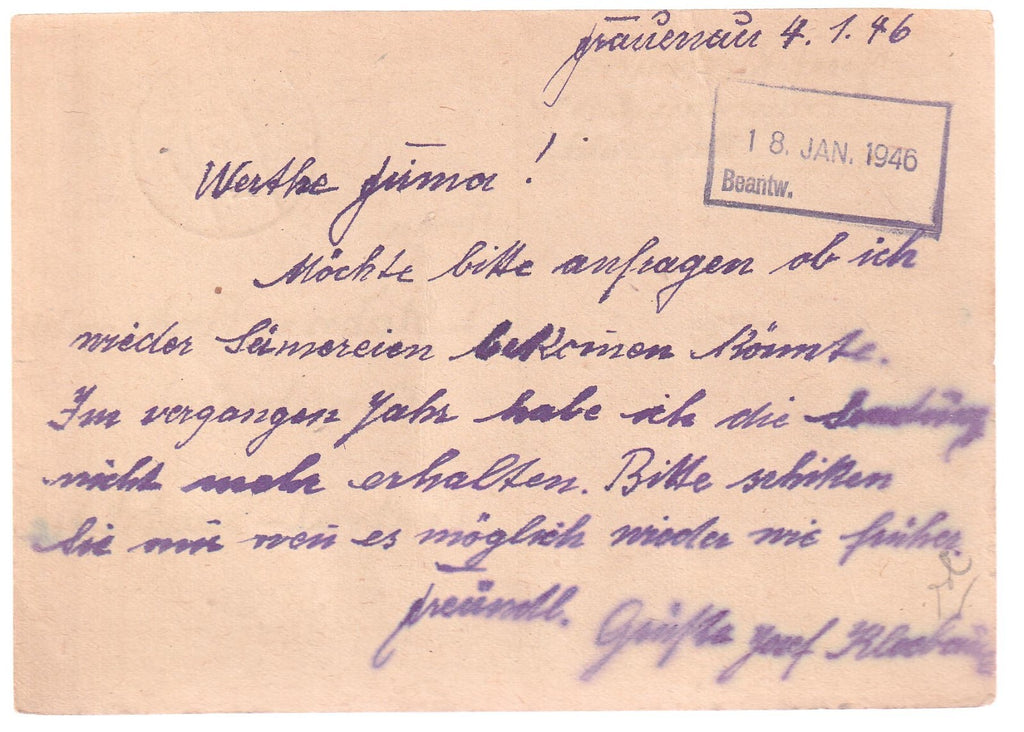 Frauenau 4.1.46
18. JAN. 1946
Beantw.
Werthe Firma!
Möchte bitte anfragen ob ich
wieder Sämereien bekom̄en könnte.
Im vergangen Jahr habe ich die Sendung
nicht mehr erhalten. Bitte schiken
Sie mir wen̄ es möglich wieder wie früher.
Freundl. Grüße Josef